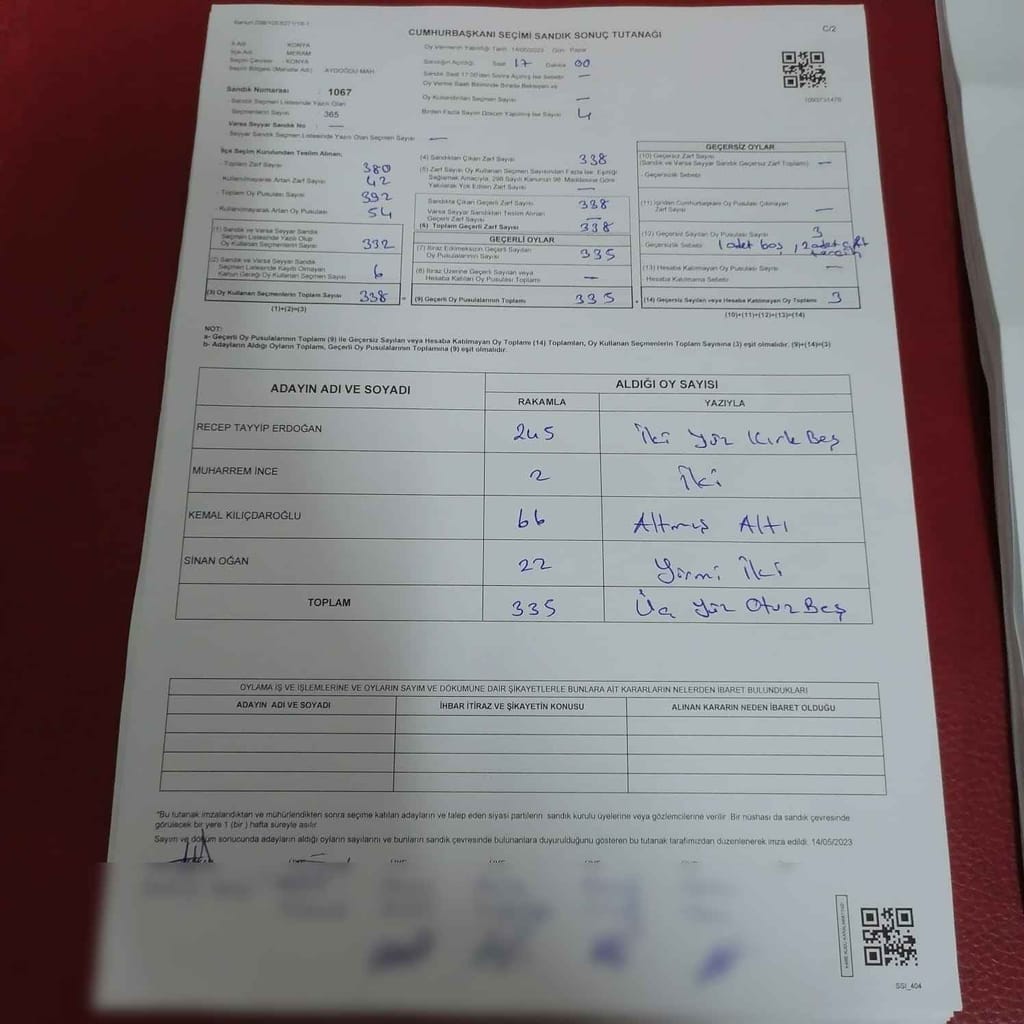 C/2
CUMHURBAŞKANI SEÇİMİ SANDIK SONUÇ TUTANAĞI
İl Adı : KONYA
İlçe Adı : MERAM
Seçim Çevresi : KONYA
Seçim Bölgesi (Mahalle Adı) : AYDOĞDU MAH.
Oy Vermenin Yapıldığı Tarih: 14/05/2023 Gün: Pazar
Sandığın Açıldığı: Saat 17 Dakika 00
Sandık Saat 17:00'den Sonra Açılmış İse Sebebi —
Oy Verme Saati Bitiminde Sırada Bekleyen ve
Oy Kullandırılan Seçmen Sayısı —
Birden Fazla Sayım Döküm Yapılmış İse Sayısı 4
Sandık Numarası : 1067
- Sandık Seçmen Listesinde Yazılı Olan
Seçmenlerin Sayısı 365
Varsa Seyyar Sandık No : —
- Seyyar Sandık Seçmen Listesinde Yazılı Olan Seçmen Sayısı —
İlçe Seçim Kurulundan Teslim Alınan;
- Toplam Zarf Sayısı 380
- Kullanılmayarak Artan Zarf Sayısı 42
- Toplam Oy Pusulası Sayısı 392
- Kullanılmayarak Artan Oy Pusulası 54
(1) Sandık ve Varsa Seyyar Sandık
Seçmen Listesinde Yazılı Olup
Oy Kullanan Seçmenlerin Sayısı 332
(2) Sandık ve Varsa Seyyar Sandık
Seçmen Listesinde Kayıtlı Olmayan
Kanun Gereği Oy Kullanan Seçmen Sayısı 6
(3) Oy Kullanan Seçmenlerin Toplam Sayısı 338
(1)+(2)=(3)
(4) Sandıktan Çıkan Zarf Sayısı 338
(5) Zarf Sayısı Oy Kullanan Seçmen Sayısından Fazla İse, Eşitliği
Sağlamak Amacıyla, 298 Sayılı Kanunun 98. Maddesine Göre
Yakılarak Yok Edilen Zarf Sayısı —
Sandıkta Çıkan Geçerli Zarf Sayısı 338
Varsa Seyyar Sandıktan Teslim Alınan
Geçerli Zarf Sayısı —
(6) Toplam Geçerli Zarf Sayısı 338
GEÇERLİ OYLAR
(7) İtiraz Edilmeksizin Geçerli Sayılan
Oy Pusulalarının Sayısı 335
(8) İtiraz Üzerine Geçerli Sayılan veya
Hesaba Katılan Oy Pusulası Toplamı —
(9) Geçerli Oy Pusulalarının Toplamı 335
GEÇERSİZ OYLAR
(10) Geçersiz Zarf Sayısı
(Sandık ve Varsa Seyyar Sandık Geçersiz Zarf Toplamı) —
- Geçersizlik Sebebi
(11) İçinden Cumhurbaşkanı Oy Pusulası Çıkmayan
Zarf Sayısı —
(12) Geçersiz Sayılan Oy Pusulası Sayısı 3
Geçersizlik Sebebi 1 adet boş, 2 adet çift
tercih
(13) Hesaba Katılmayan Oy Pusulası Sayısı —
Hesaba Katılmama Sebebi
(14) Geçersiz Sayılan veya Hesaba Katılmayan Oy Toplamı 3
(10)+(11)+(12)+(13)=(14)
NOT:
a- Geçerli Oy Pusulalarının Toplamı (9) ile Geçersiz Sayılan veya Hesaba Katılmayan Oy Toplamı (14) Toplamları, Oy Kullanan Seçmenlerin Toplam Sayısına (3) eşit olmalıdır. (9)+(14)=(3)
b- Adayların Aldığı Oyların Toplamı, Geçerli Oy Pusulalarının Toplamına (9) eşit olmalıdır.
ADAYIN ADI VE SOYADI ALDIĞI OY SAYISI
RAKAMLA YAZIYLA
RECEP TAYYİP ERDOĞAN 245 İki Yüz Kırk Beş
MUHARREM İNCE 2 İki
KEMAL KILIÇDAROĞLU 66 Altmış Altı
SİNAN OĞAN 22 Yirmi İki
TOPLAM 335 Üç Yüz Otuz Beş
OYLAMA İŞ VE İŞLEMLERİNE VE OYLARIN SAYIM VE DÖKÜMÜNE DAİR ŞİKAYETLERLE BUNLARA AİT KARARLARIN NELERDEN İBARET BULUNDUKLARI
ADAYIN ADI VE SOYADI İHBAR İTİRAZ VE ŞİKAYETİN KONUSU ALINAN KARARIN NEDEN İBARET OLDUĞU
*Bu tutanak imzalandıktan ve mühürlendikten sonra seçime katılan adayların ve talep eden siyasi partilerin sandık kurulu üyelerine veya gözlemcilerine verilir. Bir nüshası da sandık çevresinde
görülecek bir yere 1 (bir) hafta süreyle asılır.
Sayım ve döküm sonucunda adayların aldığı oyların sayılarını ve bunların sandık çevresinde bulunanlara duyurulduğunu gösteren bu tutanak tarafımızdan düzenlenerek imza edildi. 14/05/2023
SSİ_404